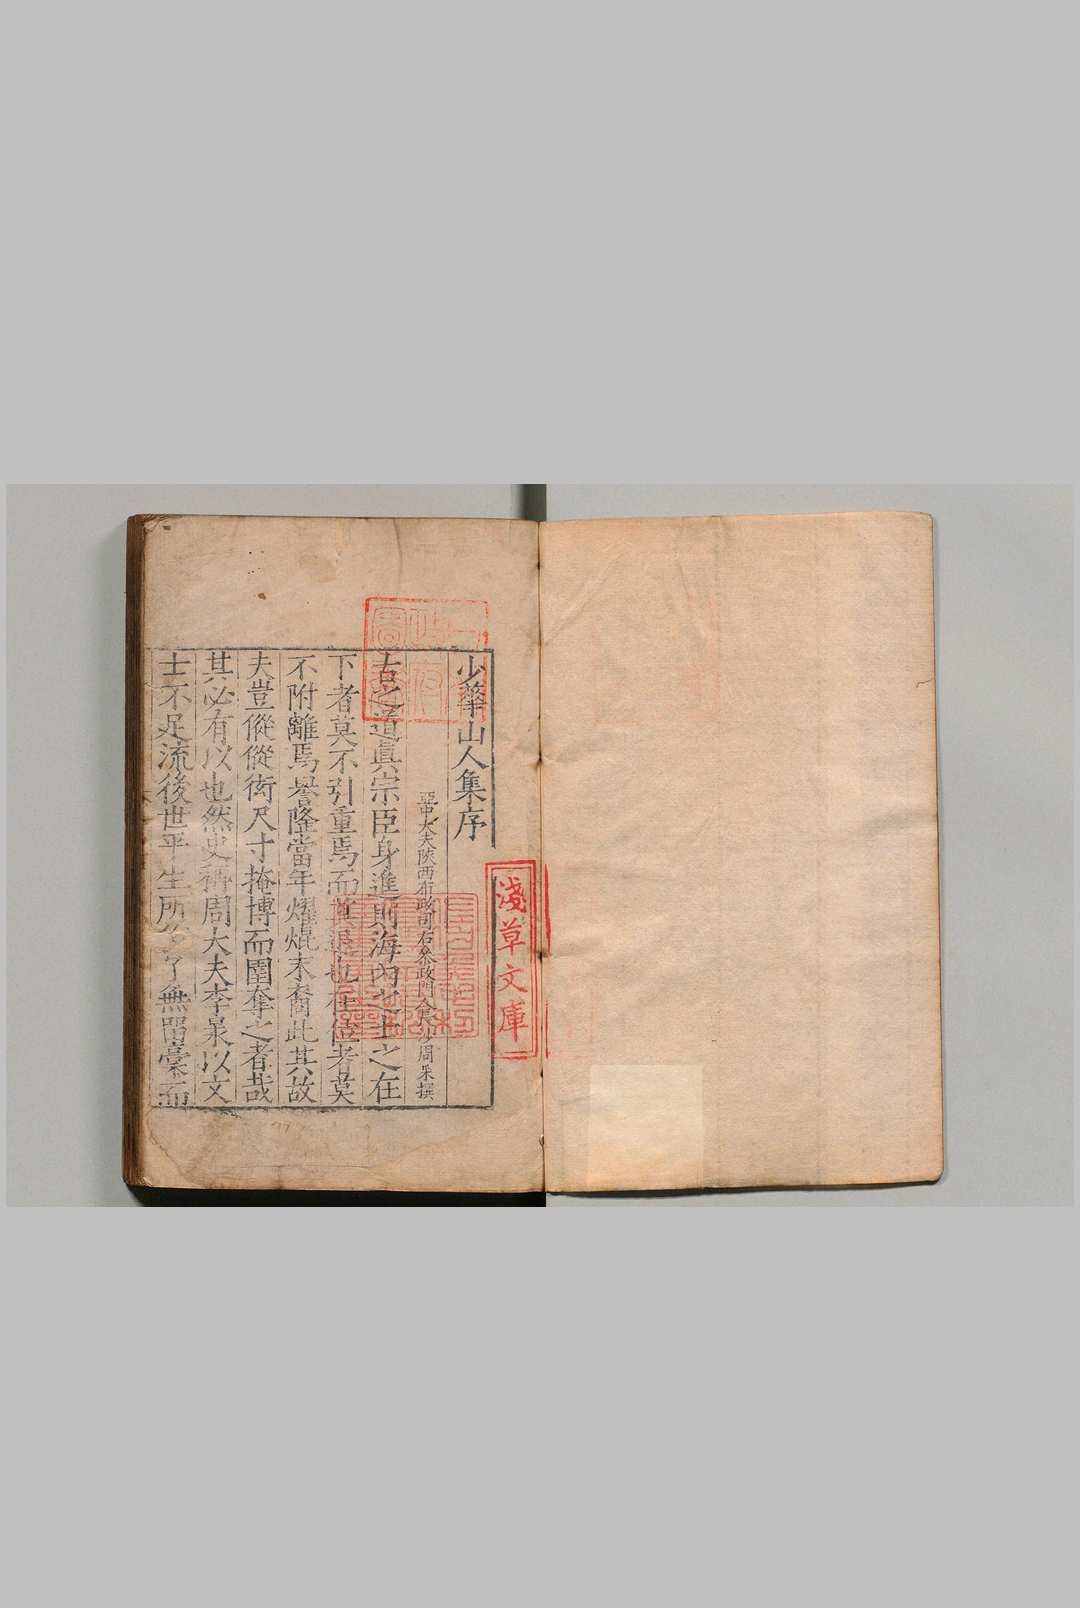 少華山人集序
亞中大夫陝西布政司右叅政門人長沙周采撰
古之道真宗臣身進則海內之士之在
下者莫不引重焉而其退也在位者莫
不附離焉譽隆當年燿焜末裔此其故
夫豈傂傂衒尺寸掩博而圉奪之者哉
其必有以也然史稱周大夫李泉以文
士不足流後世平生所 了無留稾而
淺草文庫